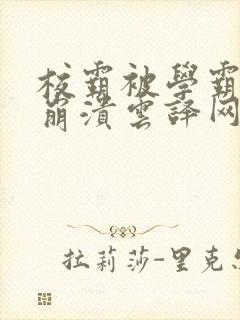 校霸被學霸
崩潰雲譯网
拉莉莎-里克